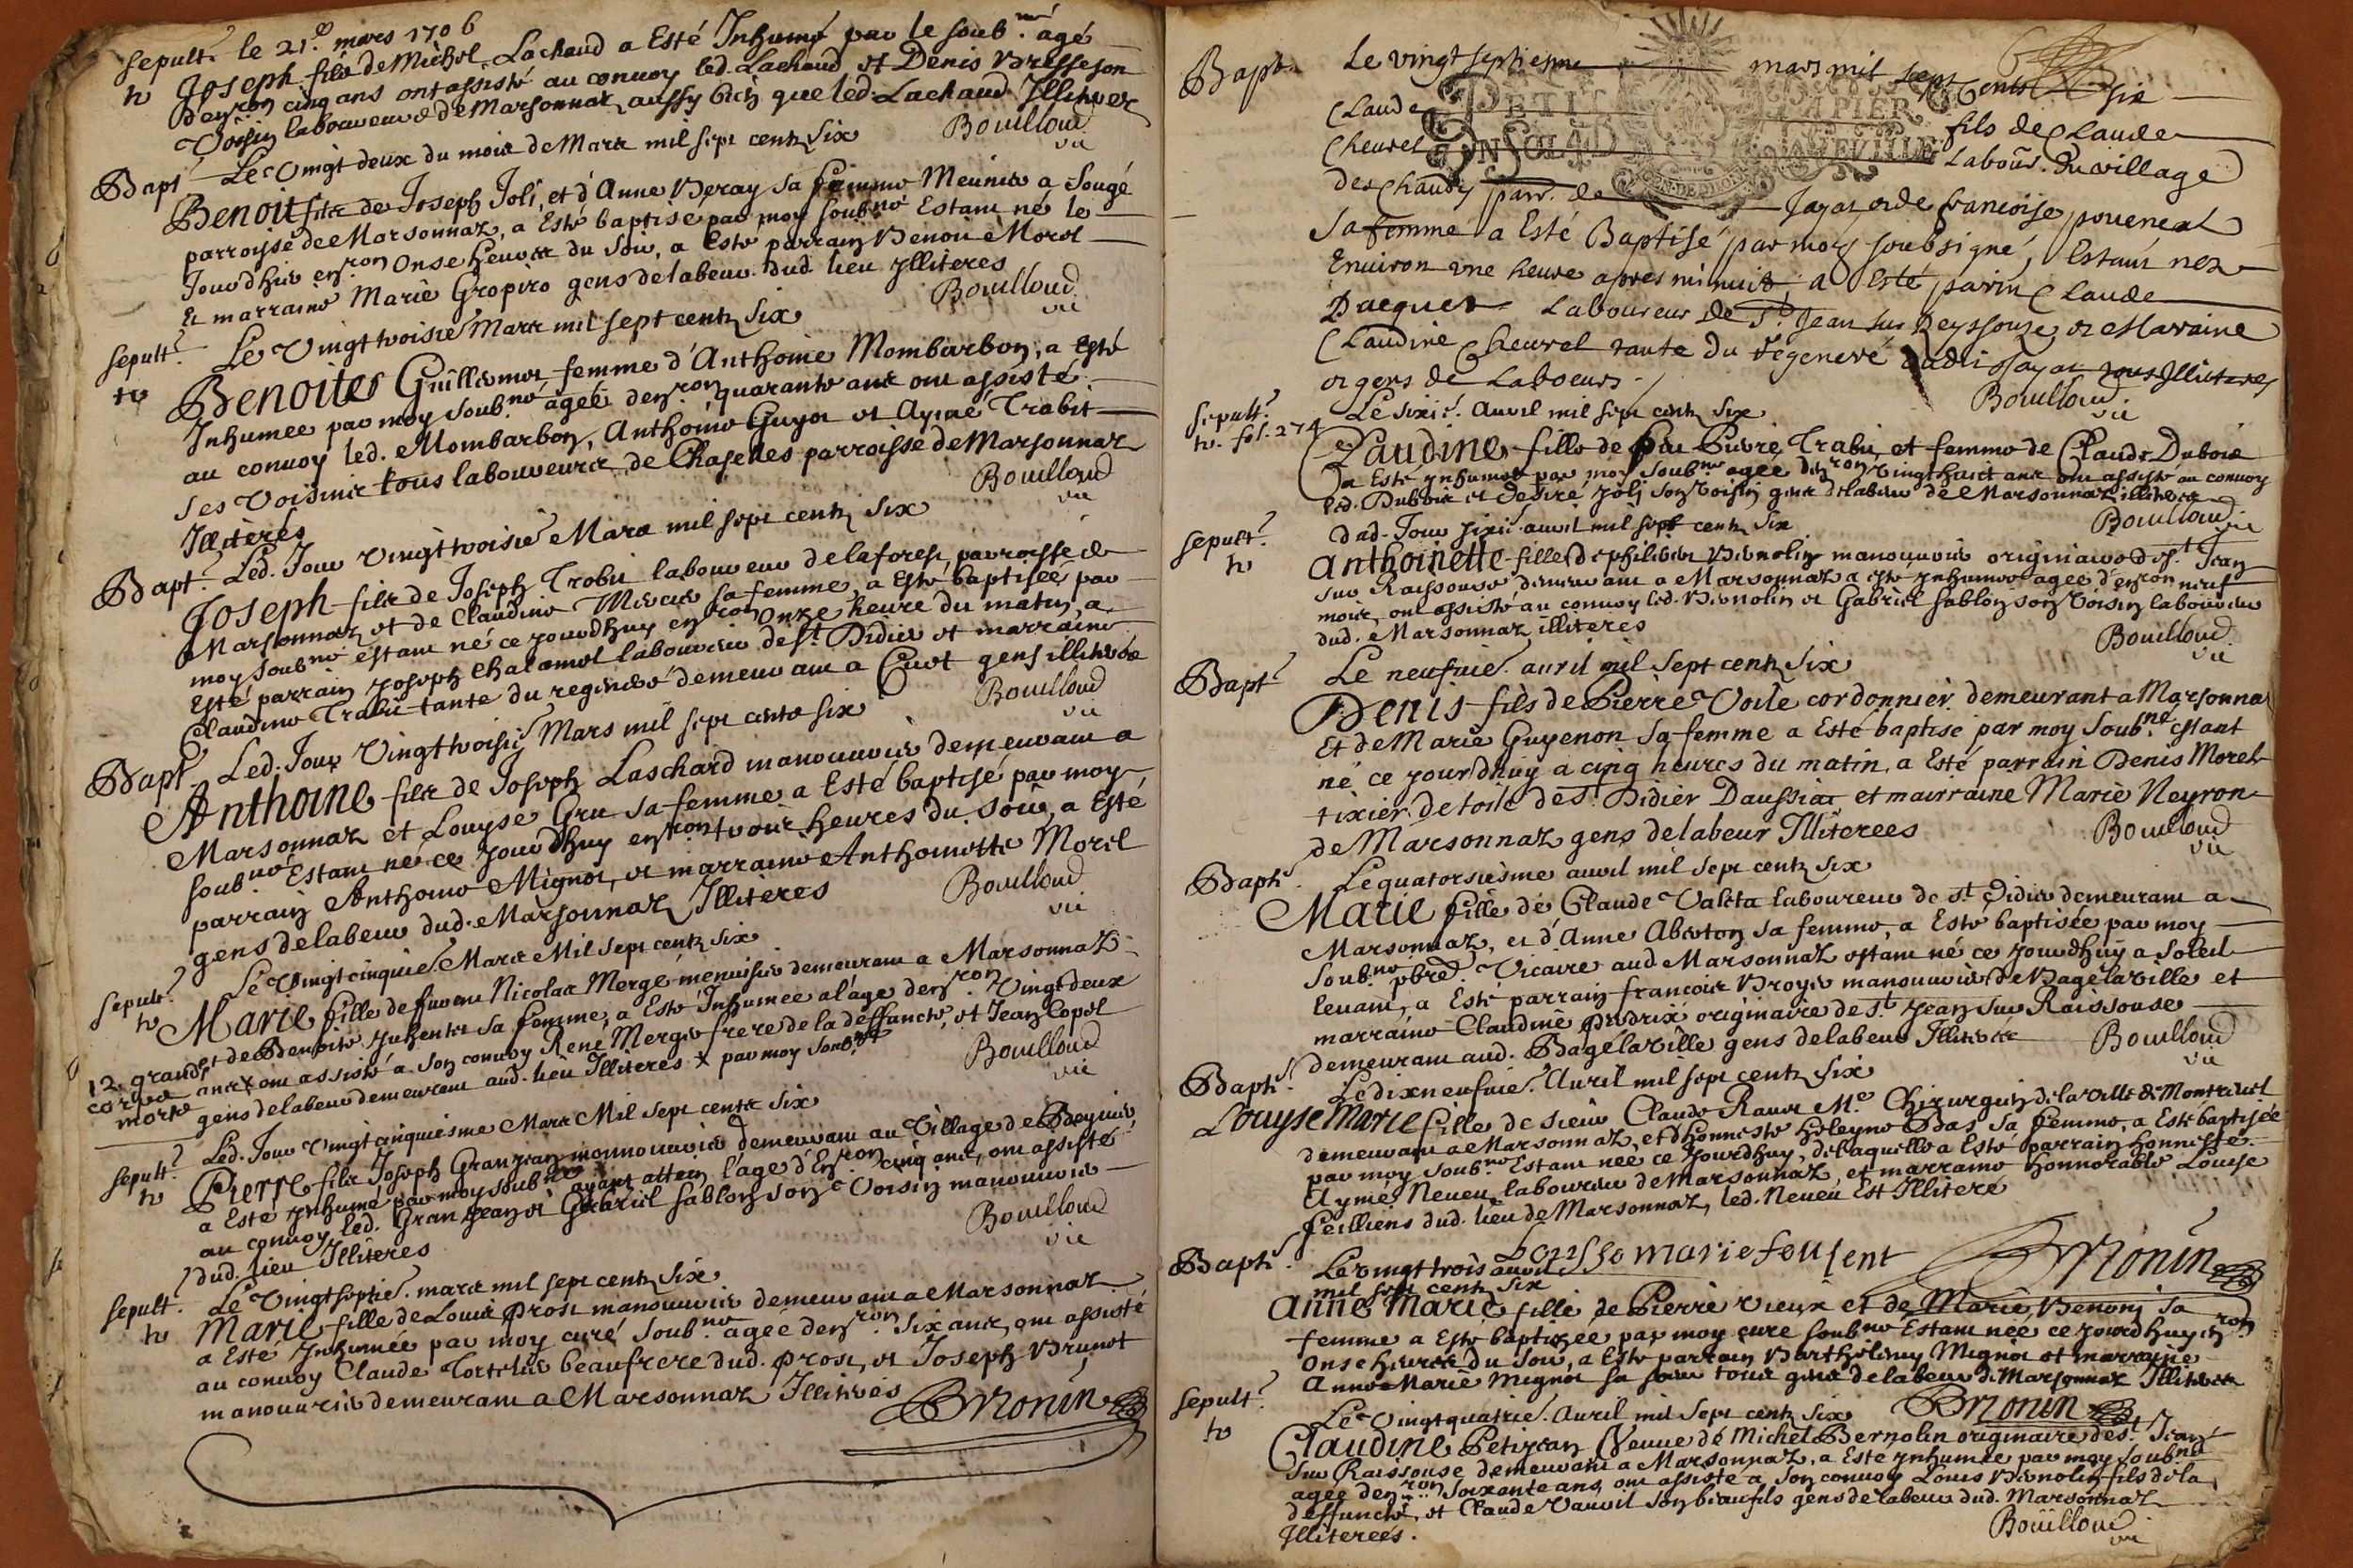 Sepult.e le 21.e mars 1706
Joseph fils de Michel Lachaud a Esté Inhumé par le soub.né agé
d'en.ron cinq ans ont assisté au convoy led. Lachaud et Denis
Voisin laboureurs de Marsonnaz aussy bien que led. Lachaud Illiteres
Bouilloud
vic
Bapt Le Vingt deux du mois de Mars mil sept centz six
Benoit fils de Joseph Joli, et d'Anne Veray sa femme Meunier a Sougé
parroisse de Marsonnaz, a Esté baptisé par moy soub.né Estant né le
Jourdhuy en.ron Onse heures du soir, a Esté parrain Benoit Morel
Et marraine Marie Gropiro gens de labeur dud. lieu Illiteres
Bouilloud
vic
Sepult.e Le Vingttroisie Mars mil sept centz six
Benoites Guilliemot femme d'Anthoine Mombarbon, a Esté
Inhumee par moy soub.né agée d'en.ron quarante ans ont assisté
au convoy led. Mombarbon, Anthoine Guyot et Aymé Trabit
ses Voisins tous laboureurs de Chaselles parroisse de Marsonnaz
Illiterés
Bouilloud
vic
Bapt. Led. Jour Vingttroisie Mars mil sept centz six
Joseph fils de Joseph Trabit laboureur de la forest, parroisse de
Marsonnaz et de Claudine sa femme, a Esté baptiseé par
moy soub.né estant né ce jourdhuy en.ron Onze heure du matin, a
Esté parrain Joseph Chalamel laboureur de St. Didier et marraine
Claudine Trabit tante du regeneré demeurant a Curt gens illiteres
Bouilloud
vic
Bapt Led. Jour Vingttroisie Mars mil sept cents six
Anthoine fils de Joseph Laschard manouvrier demeurant a
Marsonnaz et Louyse Gru sa femme a Esté baptisé par moy
soub.né Estant né ce jourdhuy en.ron trois heures du soir, a Esté
parrain Anthoine Mignot, et marraine Anthoinette Morel
gens de labeur dud. Marsonnaz Illiteres
Bouilloud
vic
Sepult.e Le Vingtcinquie. Mars Mil sept centz six
Marie fille de feu Nicolas Mergé menuisier demeurant a Marsonnaz
et de Benoite sa femme, a Esté Inhumee a l'age d'en.ron Vingt deux
12. grands ans x ont assisté a son convoy René Mergé frere de la deffuncte, et Jean Copel
corps gens de labeur demeurant aud. lieu Illiteres x par moy soub.né
morts
Bouilloud
vic
Sepult.e Led. Jour Vingtcinquiesme Mars Mil sept cents six
Pierre fils Joseph Granjean mannouvrier demeurant au Village de
a Esté Inhumé par moy soub.né ayant attein l'age d'En.ron cinq ans, ont assisté
au convoy led. Granjean et Gabriel Sablon son Voisin manouvrier
dud. lieu Illiteres
Bouilloud
vic
Sepult. Le Vingtseptie. mars mil sept centz six
Marie fille de Louis Prost manouvrier demeurant a Marsonnaz
a Esté Inhumée par moy curé soub.né agée d'en.ron six ans, ont assisté
au convoy Claude beaufrere dud. Prost, et Joseph Brunet
manouvrier demeurant a Marsonnaz Illiterés
Bap.t Le vingt septiesme mars mil sept Cents six
PETIT PAPIER
Claude fils de Claude
Chevrel Labour. du village
des Chaudy parr. de Jayat et de francoise
sa femme a Esté Baptisé par moy soubsigné, Estant nez
Environ une heure apres minuit a Esté parin Claude
Dacquet Laboureur de St. Jean sur Reyssouze et Maraine
Claudine Chevrel tante du regeneré dudit Jayat tous Illiteres
et gens de Labeurs
Bouilloud
vic
Sepult.e Le sixie. Avril mil sept centz six
fol. 274 Claudine fille de feu Trabit, et femme de Claude Dubois
a Esté Inhumée par moy soub.né agee d'en.ron vingthuict ans ont assisté au convoy
led. Dubois et Desiré Joli son Voisin gens de labeur de Marsonnaz illiteres
Bouilloud
vic
Sepult.e Dud. Jour sixie. avril mil sept centz six
Anthoinette fille de Philibert Bernolin manouvrier originaire de St. Jean
sur Raissouse demeurant a Marsonnaz a esté Inhumee agee d'en.ron neuf
mois, ont assisté au convoy led. Bernolin et Gabriel Sablon son Voisin laboureur
dud. Marsonnaz illiteres
Bouilloud
vic
Bapt Le neufuie. avril mil sept centz six
Denis fils de Pierre Voile cordonnier demeurant a Marsonnaz
Et de Marie Guyenon sa femme a Esté baptisé par moy soub.né estant
né ce jourdhuy a cinq heures du matin, a Esté parrain Denis Morel
tixier de toile de St. Didier Daussiat et mairraine Marie Neyron
de Marsonnaz gens de labeur Illiterees
Bouilloud
vic
Bapt. Le quatorsiesme avril mil sept centz six
Marie fille de Claude Valeta laboureur de St. Didier demeurant a
Marsonnaz, et d'Anne Aberton sa femme, a Esté baptisée par moy
soub.né pbre Vicaire aud Marsonnaz estant né ce jourdhuy a soleil
levant, a Esté parrain francois Broyer manouvrier de Bagé la ville et
marraine Claudine Perdrix originaire de St. Jean sur Raissouse
demeurant aud. Bagé la ville gens de labeur Illiteres
Bouilloud
vic
Bapt. Le dixneufuie. Avril mil sept centz six
Louyse Marie fille de sieur Claude Ravet M.e Chirurgien de la ville de Montrevel
demeurant a Marsonnaz, et d'honneste Heleyne Bas sa femme, a Esté baptisée
par moy soub.né Estant née ce jourdhuy, de laquelle a Esté parrain honneste
Aymé Neveu laboureur de Marsonnaz, et marraine honnorable Louise
feilliens dud. lieu de Marsonnaz, led. Neveu Est Illiteré
Bapt. Le vingttrois avril
mil sept centz six
Anne Marie fille de Pierre Vieux et de Marie Benon sa
femme a Esté baptisée par moy curé soub.né Estant née ce jourdhuy en.ron
onse heures du soir, a Esté parrain Barthelemy Mignot et marrayne
Anne Marie Mignot sa soeur tous gens de labeur de Marsonnaz Illiteres
Sepult.e Le Vingtquatrie. Avril mil sept centz six
Claudine Petitjean Veuve de Michel Bernolin originaire de St. Jean
sur Raissouse demeurant a Marsonnaz, a Esté Inhumée par moy soub.né
agée d'en.ron soixante ans, ont assisté a son convoy Louis Bernolin fils de la
deffuncte, et Claude Vauvil son beaufils gens de labeur dud. Marsonnaz
Illiterees.
Bouilloud
vic